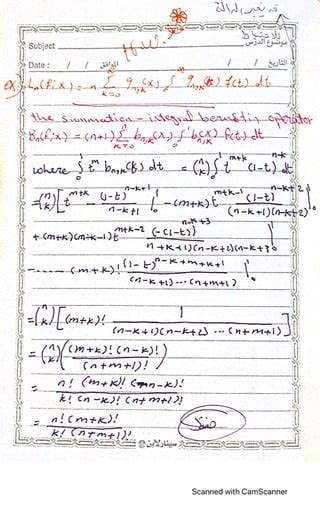 H.W.
Subject
موضوع الدرس
Date: / / الموافق / / التاريخ
ex) Ln(f;x) = n Σ_{k=0}^{∞} q_{n,k}(x) ∫ q_{n,k}(t) f(t) dt
the summation - integral bernstein operator
Bn(f;x) = (n+1) Σ_{k=0}^{n} b_{n,k}(x) ∫_0^1 b_{n,k}(t) f(t) dt
where ∫_0^1 t^m b_{n,k}(t) dt = (n k) ∫_0^1 t^{m+k} (1-t)^{n-k} dt
= (n k) [ t^{m+k} (1-t)^{n-k+1} / n-k+1 |_0^1 - (m+k) t^{m+k-1} (1-t)^{n-k+2} / (n-k+1)(n-k+2) |_0^1
+ (m+k)(m+k-1) t^{m+k-2} (-(1-t))^{n-k+3} / n-k+1)(n-k+2)(n-k+3 |_0^1
- ...... (m+k)! (1-t)^{n-k+m+k+1} / (n-k+1) ... (n+m+1) |_0^1
= (n k) [ (m+k)! 1 / (n-k+1)(n-k+2) ... (n+m+1) ]
= (n k) ( (m+k)! (n-k)! / (n+m+1)! )
= n! (m+k)! (n-k)! / k! (n-k)! (n+m+1)!
= n! (m+k)! / k! (n+m+1)!
Scanned with CamScanner